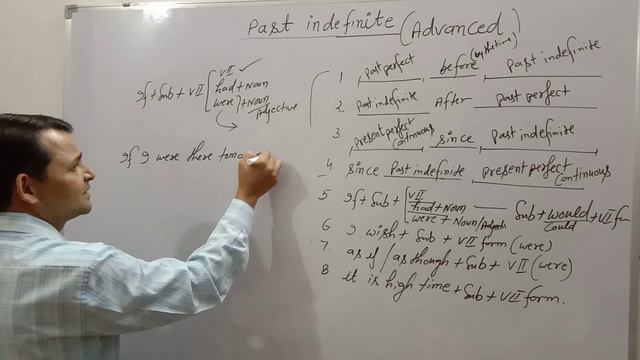 Past indefinite (Advanced)
If + Sub + VII [ VII ✓
had + Noun
were + Noun
Adjective
If I were there tomo
1 Past perfect before (by the time) Past indefinite
2 Past indefinite After Past perfect
3 Present perfect Continuous since Past indefinite
4. since Past indefinite present perfect Continuous
5 If + Sub + [ VII
had + Noun
were + Noun/Adjective — Sub + would + VI form
could
6 I wish + Sub + VII form (were)
7 as if / as though + Sub + VII (were)
8 it is high time + Sub + VII form.